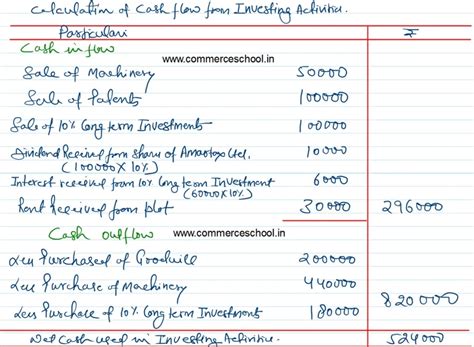 Calculation of Cash flow from Investing Activities.
Particulars ₹
Cash inflow
www.commerceschool.in
Sale of Machinery 50000
Sale of Patents 100000
Sale of 10% Long term Investments 100000
Dividend Received from Share of Amartex Ltd. 10000
(100000 X 10%)
Interest received from 10% Long term Investment 6000
(60000 X 10%)
Rent Received from plot 30000 296000
Cash outflow www.commerceschool.in
Less Purchased of Goodwill 200000
Less Purchase of Machinery 440000
Less Purchase of 10% Long term Investments 180000 820000
Net Cash used in Investing Activities. 524000